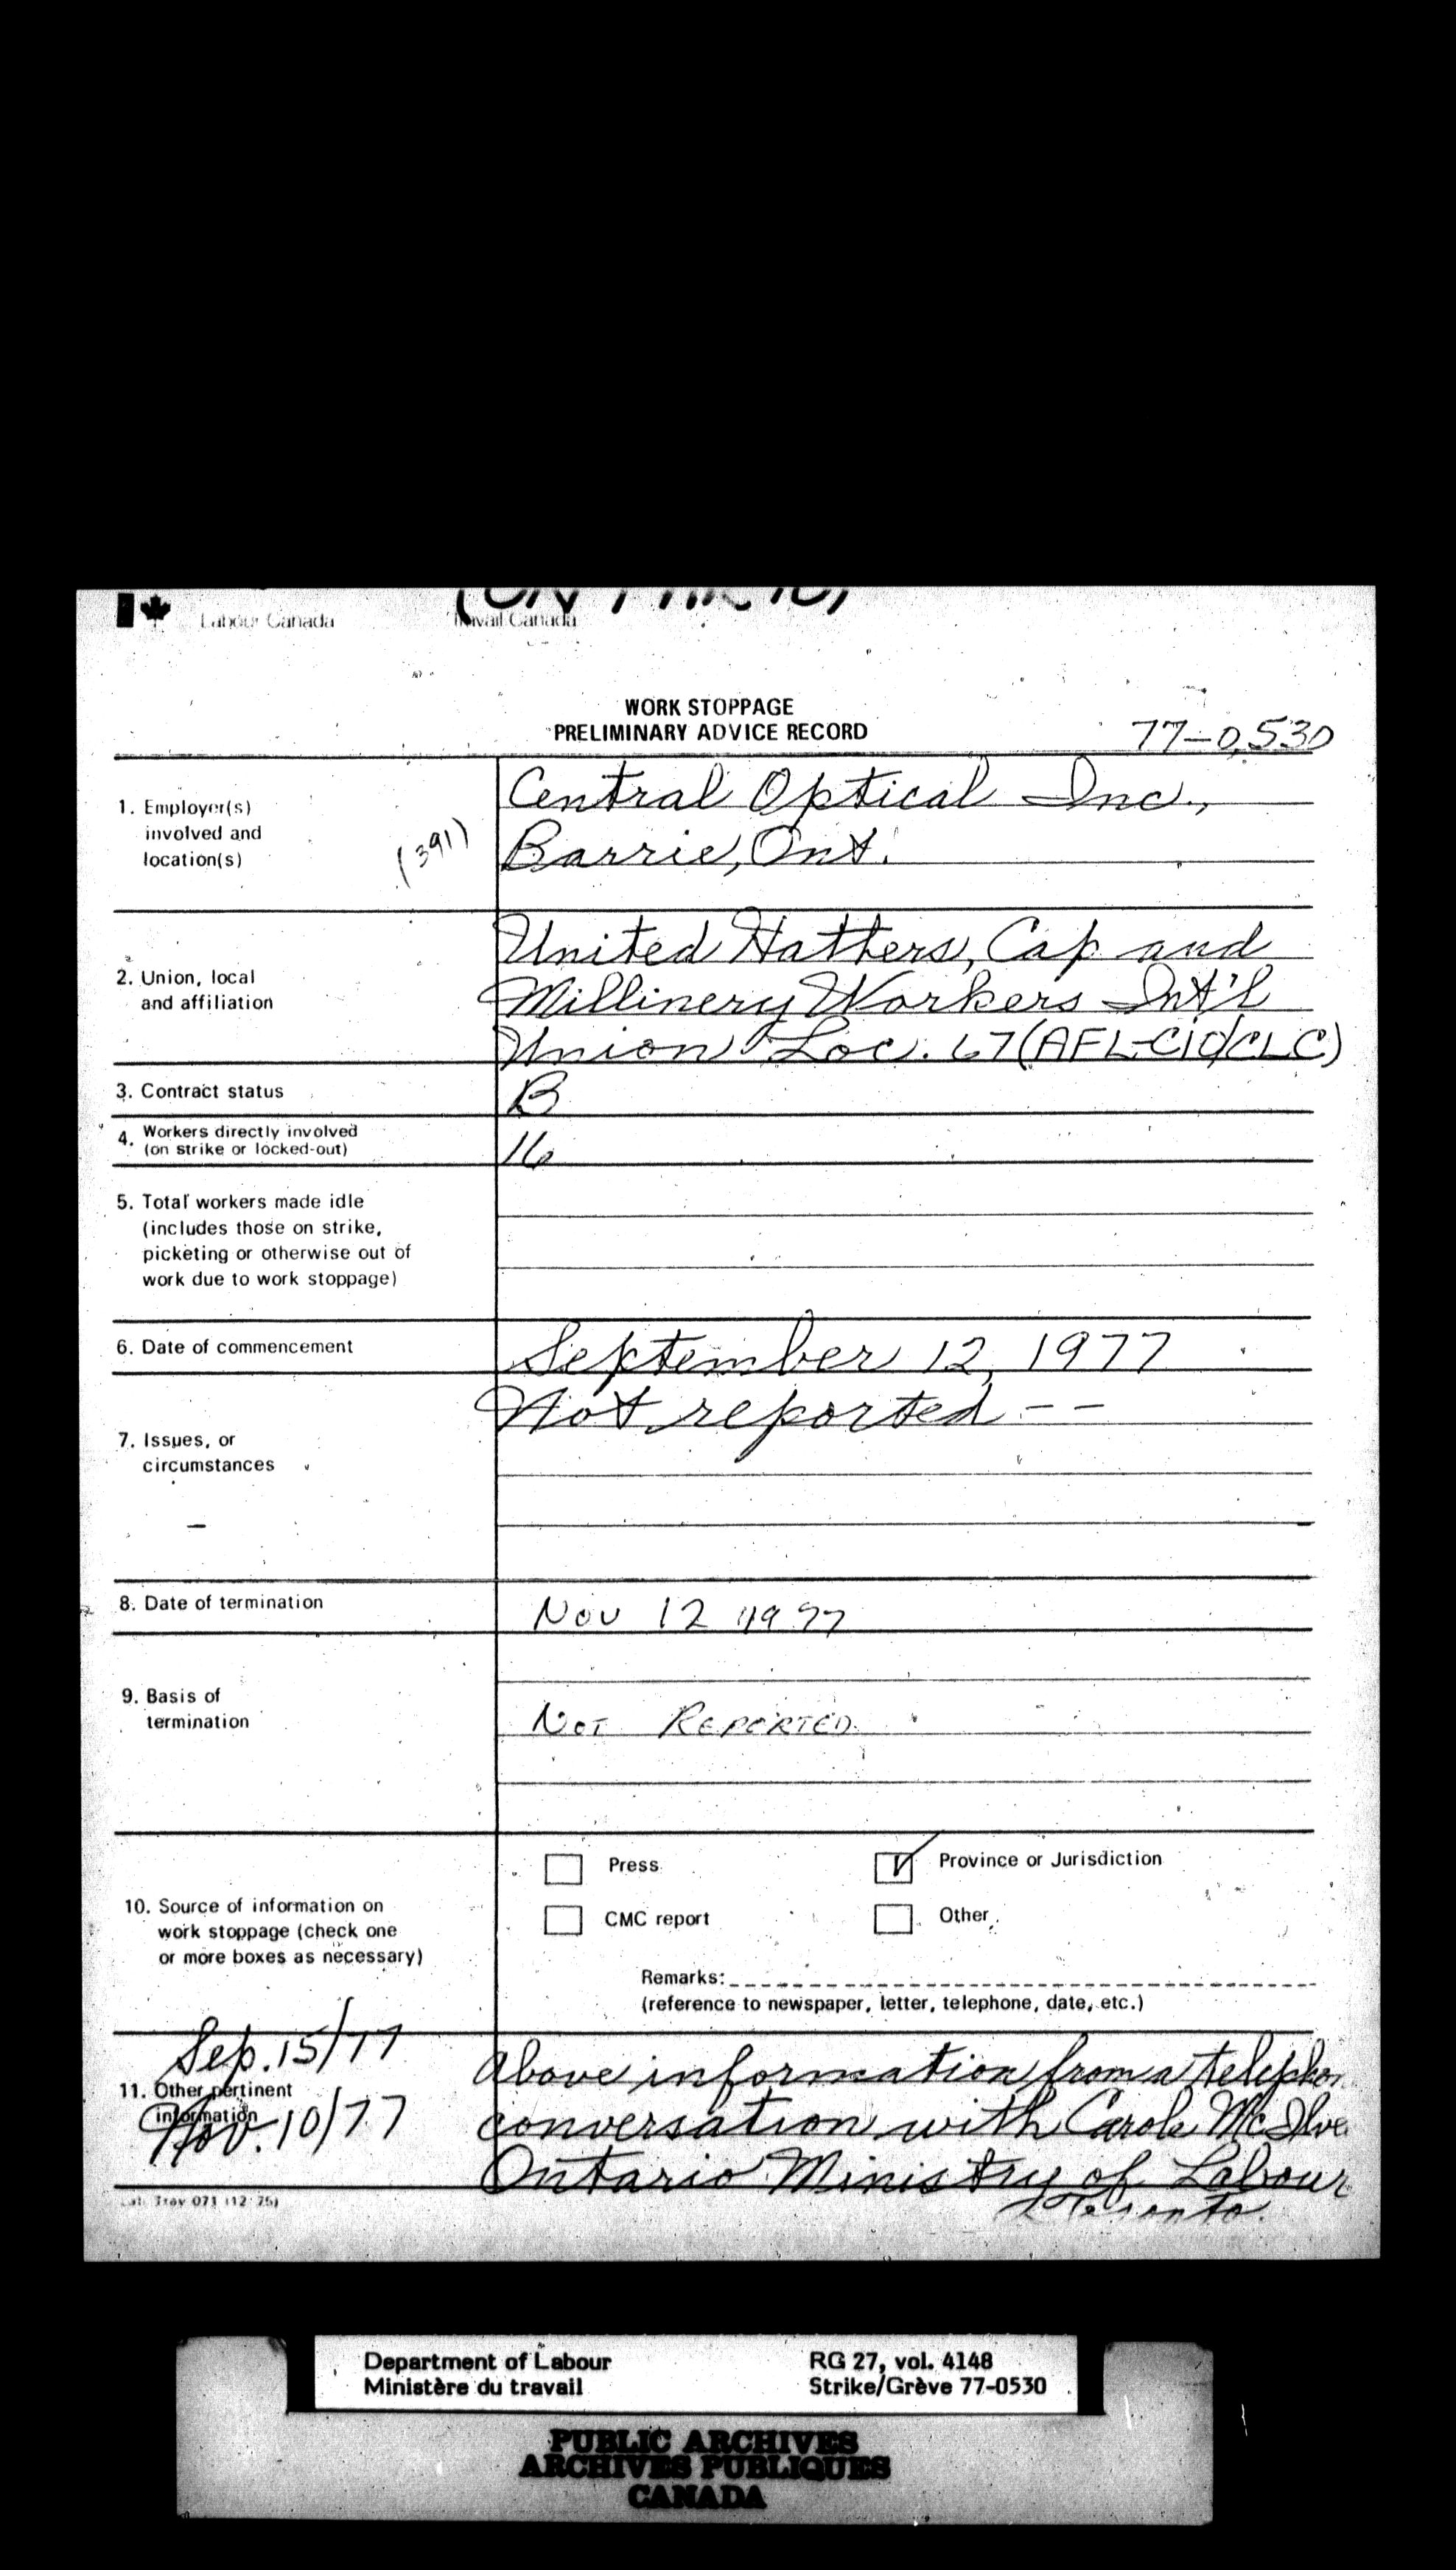 (ONTARIO)
Labour Canada Travail Canada
WORK STOPPAGE
PRELIMINARY ADVICE RECORD
77-0,530
1. Employer(s)
involved and
location(s)
(391)
Central Optical Inc.,
Barrie, Ont.
2. Union, local
and affiliation
United Hatters, Cap and
Millinery Workers Int'l
Union Loc. 67 (AFL-CIO/CLC)
3. Contract status
B
4. Workers directly involved
(on strike or locked-out)
16
5. Total workers made idle
(includes those on strike,
picketing or otherwise out of
work due to work stoppage)
6. Date of commencement
September 12, 1977
7. Issues, or
circumstances
Not reported --
8. Date of termination
Nov 12 1977
9. Basis of
termination
NOT REPORTED
10. Source of information on
work stoppage (check one
or more boxes as necessary)
Press
Province or Jurisdiction
CMC report
Other
Remarks:
(reference to newspaper, letter, telephone, date, etc.)
Sep. 15/77
11. Other pertinent
information
Nov. 10/77
Above information from a telephon
conversation with Carole McIlve
Ontario Ministry of Labour
Toronto.
Lab. Trav 071 (12-75)
Department of Labour
Ministère du travail
RG 27, vol. 4148
Strike/Grève 77-0530
PUBLIC ARCHIVES
ARCHIVES PUBLIQUES
CANADA